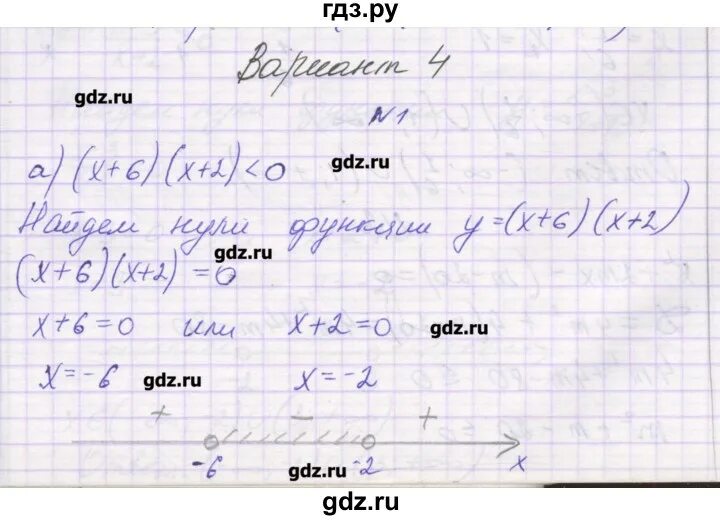 гдз.ру
Вариант 4
gdz.ru
N1
а) (x+6)(x+2)<0
gdz.ru
Найдем нули функции y=(x+6)(x+2)
gdz.ru
(x+6)(x+2)=0
x+6=0 или x+2=0
gdz.ru
x=-6 x=-2
gdz.ru
+ - +
-6 -2 x
gdz.ru
gdz.ru